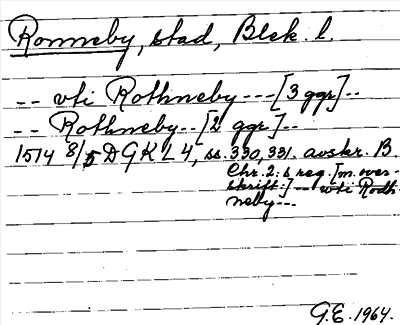 Ronneby, stad, Blek. l.
-- vti Rothneby --- [3 ggr] --
-- Rothneby -- [2 ggr] --
1514 8/5 DGKL 4, ss. 330, 331. avskr. B.
Chr. 2:s reg. [m. över-
skrift:] -- vti Rodh-
neby ---
G.E. 1964.